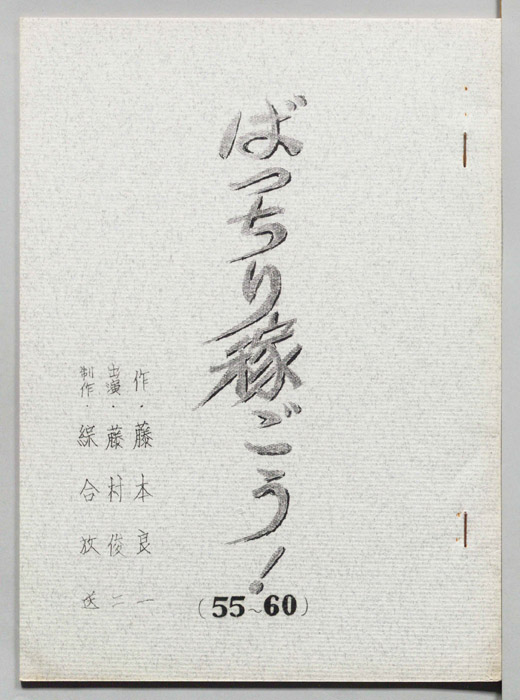 ばっちり稼ごう!
(55~60)
作・藤本良一
出演・藤村俊二
制作・綜合放送